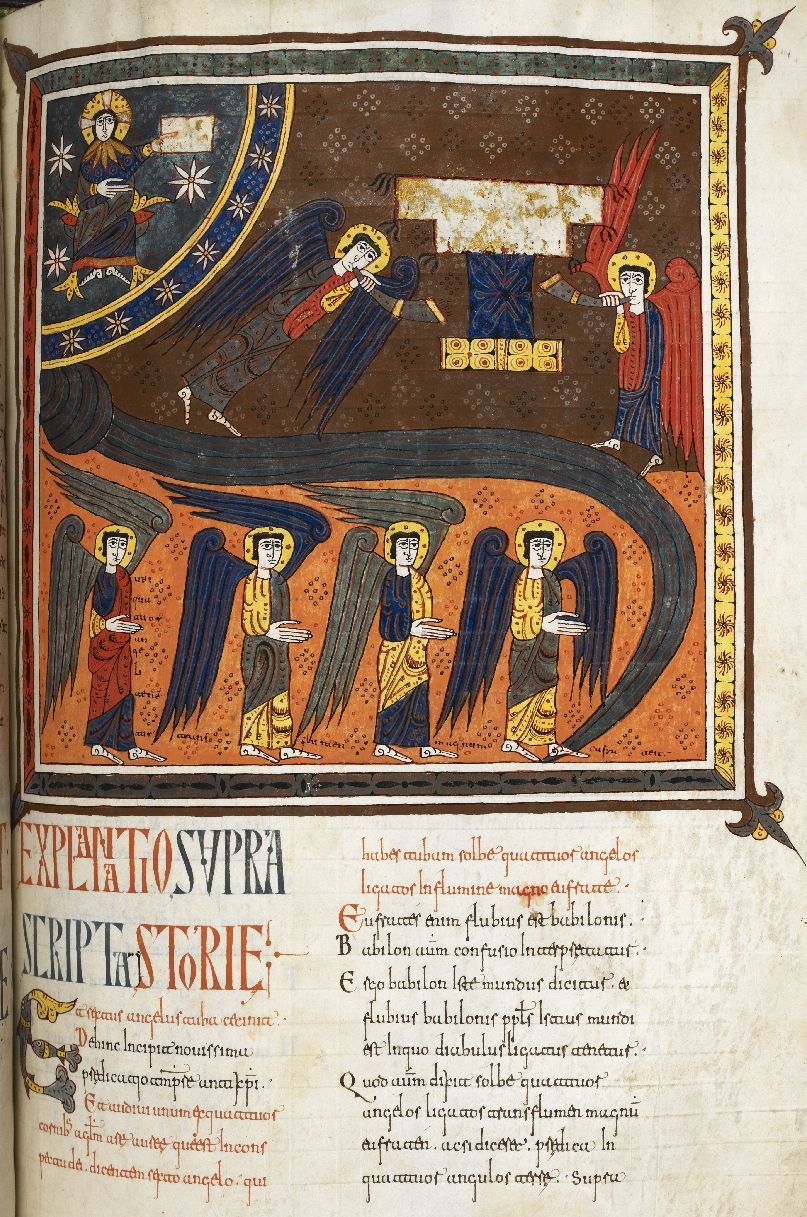 magnum
EXPLANATIO SUPRA
SCRIPTA STORIE
Et sextus angelus tuba cecinit
Dehinc Incipit novissima
predicatio tmpre antixpi.
Et audivi unum ex quattuor
pectu dei. dicentem sexto angelo. qui
habes tubam solbe quattuor angelos
ligatos In flumine magno eufrate.
Eufrates enim flubius est babilonis.
Babilon aum confusio Interpretatur.
Ergo babilon Iste mundus dicitur. et
flubius babilonis ppls Istius mundi
est Inquo diabulus ligatus tenetur.
Quod aum dixit solbe quattuor
angelos ligatos trans flumen magnū
eufraten. acsi diceret. predica In
quattuor angulos terre. Supra